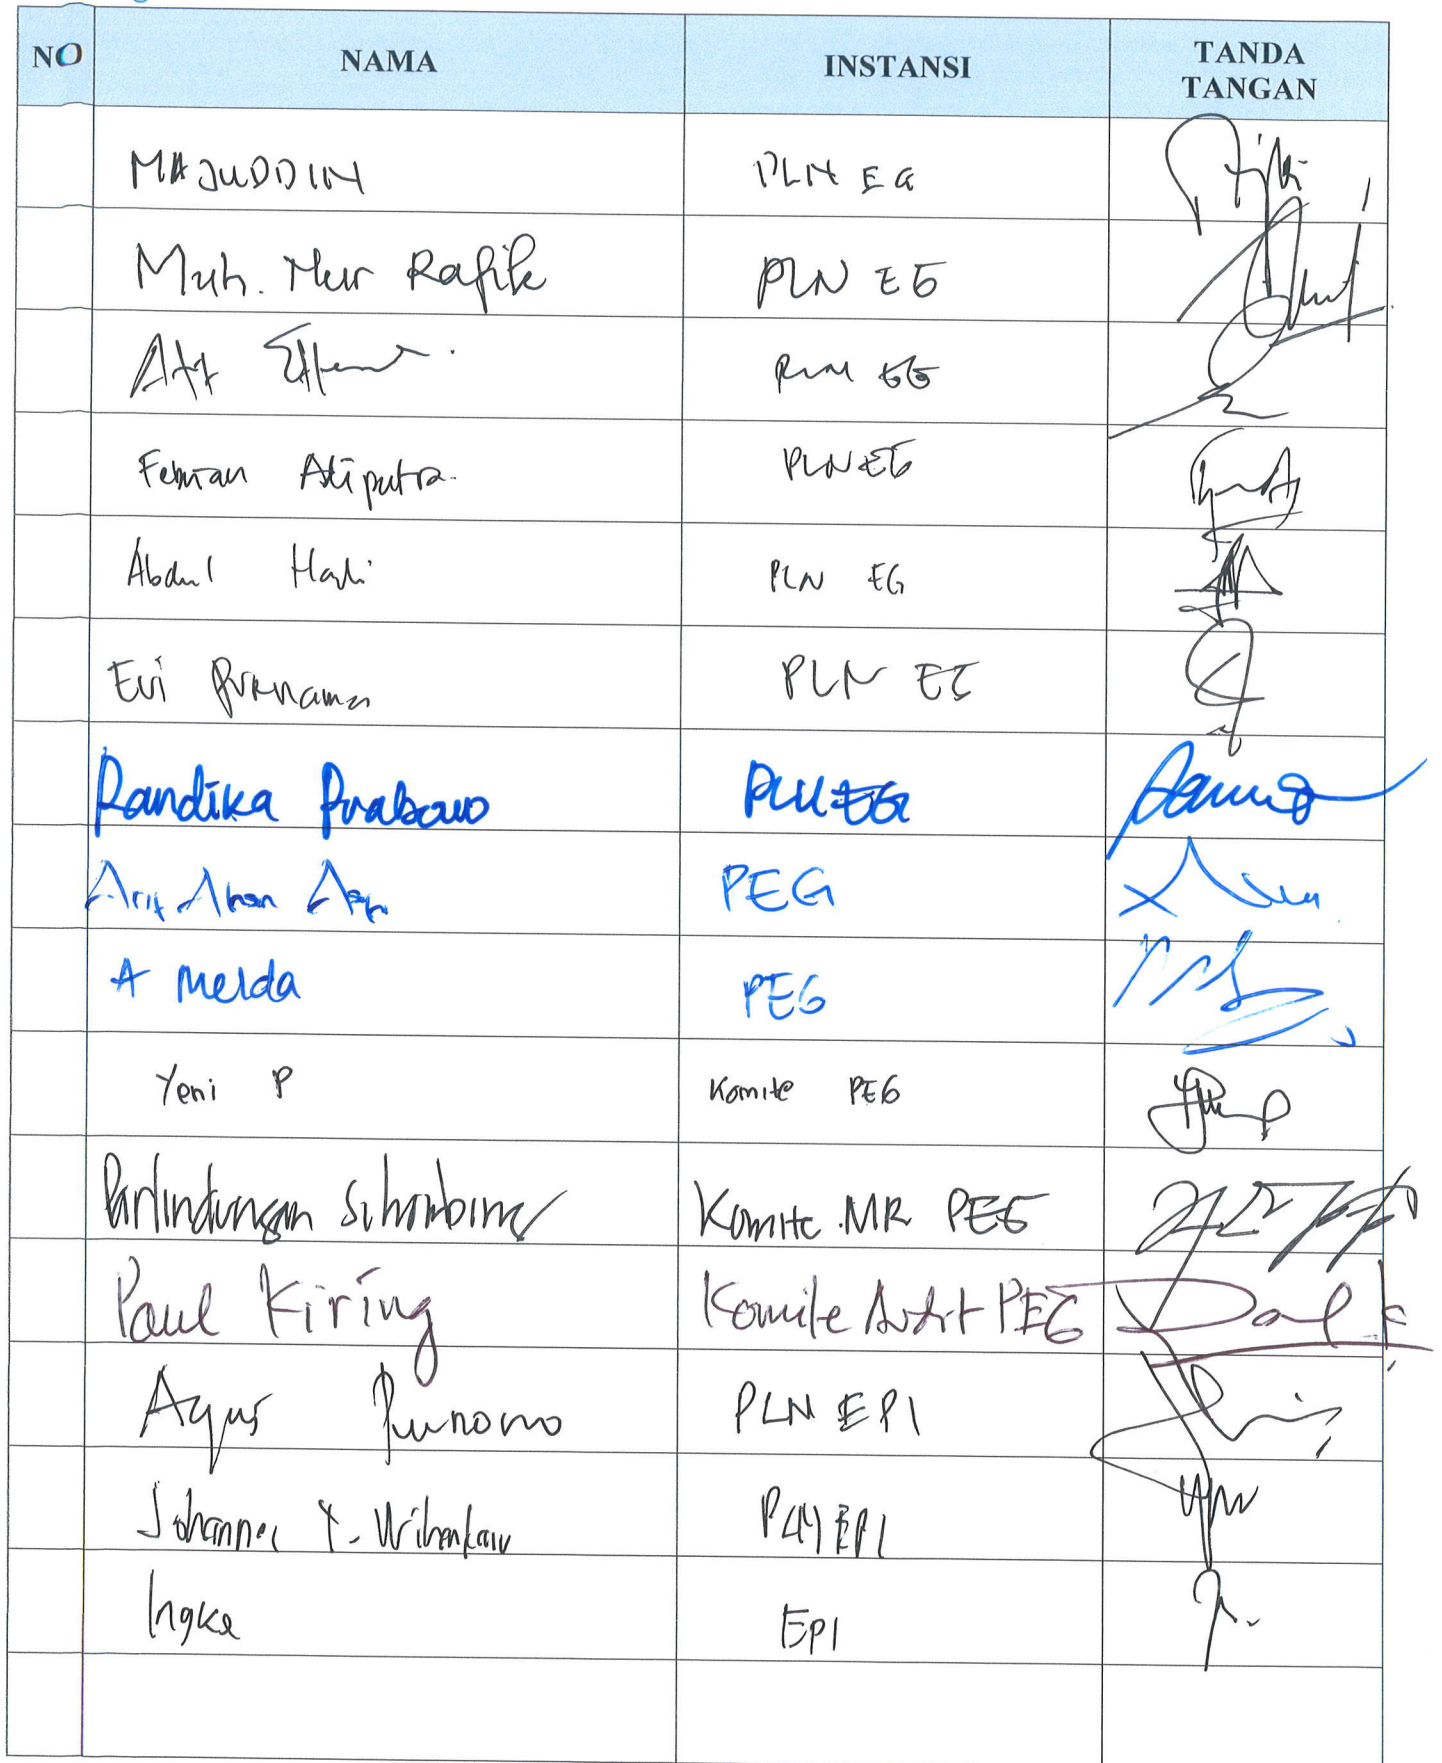 NO NAMA INSTANSI TANDA TANGAN
MAJUDDIN PLN EG
Muh. Nur Rafik PLN EG
PLN EG
Febrian Atiputra PLN EG
Abdul Hadi PLN EG
Evi Purnama PLN EG
Randika Prabowo PLN EG
Arif PEG
A Melda PEG
Yeni P Komite PEG
Parlindungan Sihombing Komite MR PEG
Paul Kiring Komite Audit PEG
Agus Purnomo PLN EPI
Johannes Y. PLN EPI
Ingka EPI